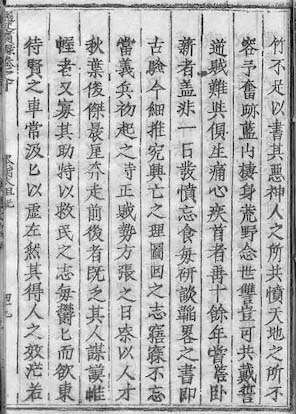 竹不足以書其惡神人之所共憤天地之所不
容予奮跡藍山棲身荒野念世讐豈可共戴誓
逆賊難與俱生痛心疾首者再十餘年嘗膽卧
薪者盖非一日發憤忘食每研談韜畧之書即
古驗今細推究興亡之理圖回之志寤寐不忘
當義兵初起之時正賊勢方張之日奈以人才
秋葉俊傑晨星奔走前後者既乏其人謀謨惟
幄者又寡其助特以救民之志每欝匕而欲東
待賢之車當汲匕以虚左然其得人之效茫若